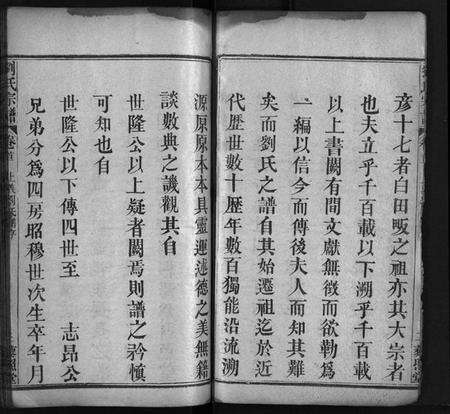 彦十七者白田畈之祖亦其大宗者
也夫立乎千百載以下溯乎千百載
以上書闕有間文獻無徵而欲勒爲
一編以信今而傳後夫人而知其難
矣而劉氏之譜自其始遷祖迄於近
代歷世數十歷年數百獨能沿流溯
源原原本本具靈運述德之美無籍
談數典之譏觀其自
世隆公以上疑者闕焉則譜之矜慎
可知也自
世隆公以下傳四世至 志昂公
兄弟分爲四房昭穆世次生卒年月
劉氏宗譜 卷首